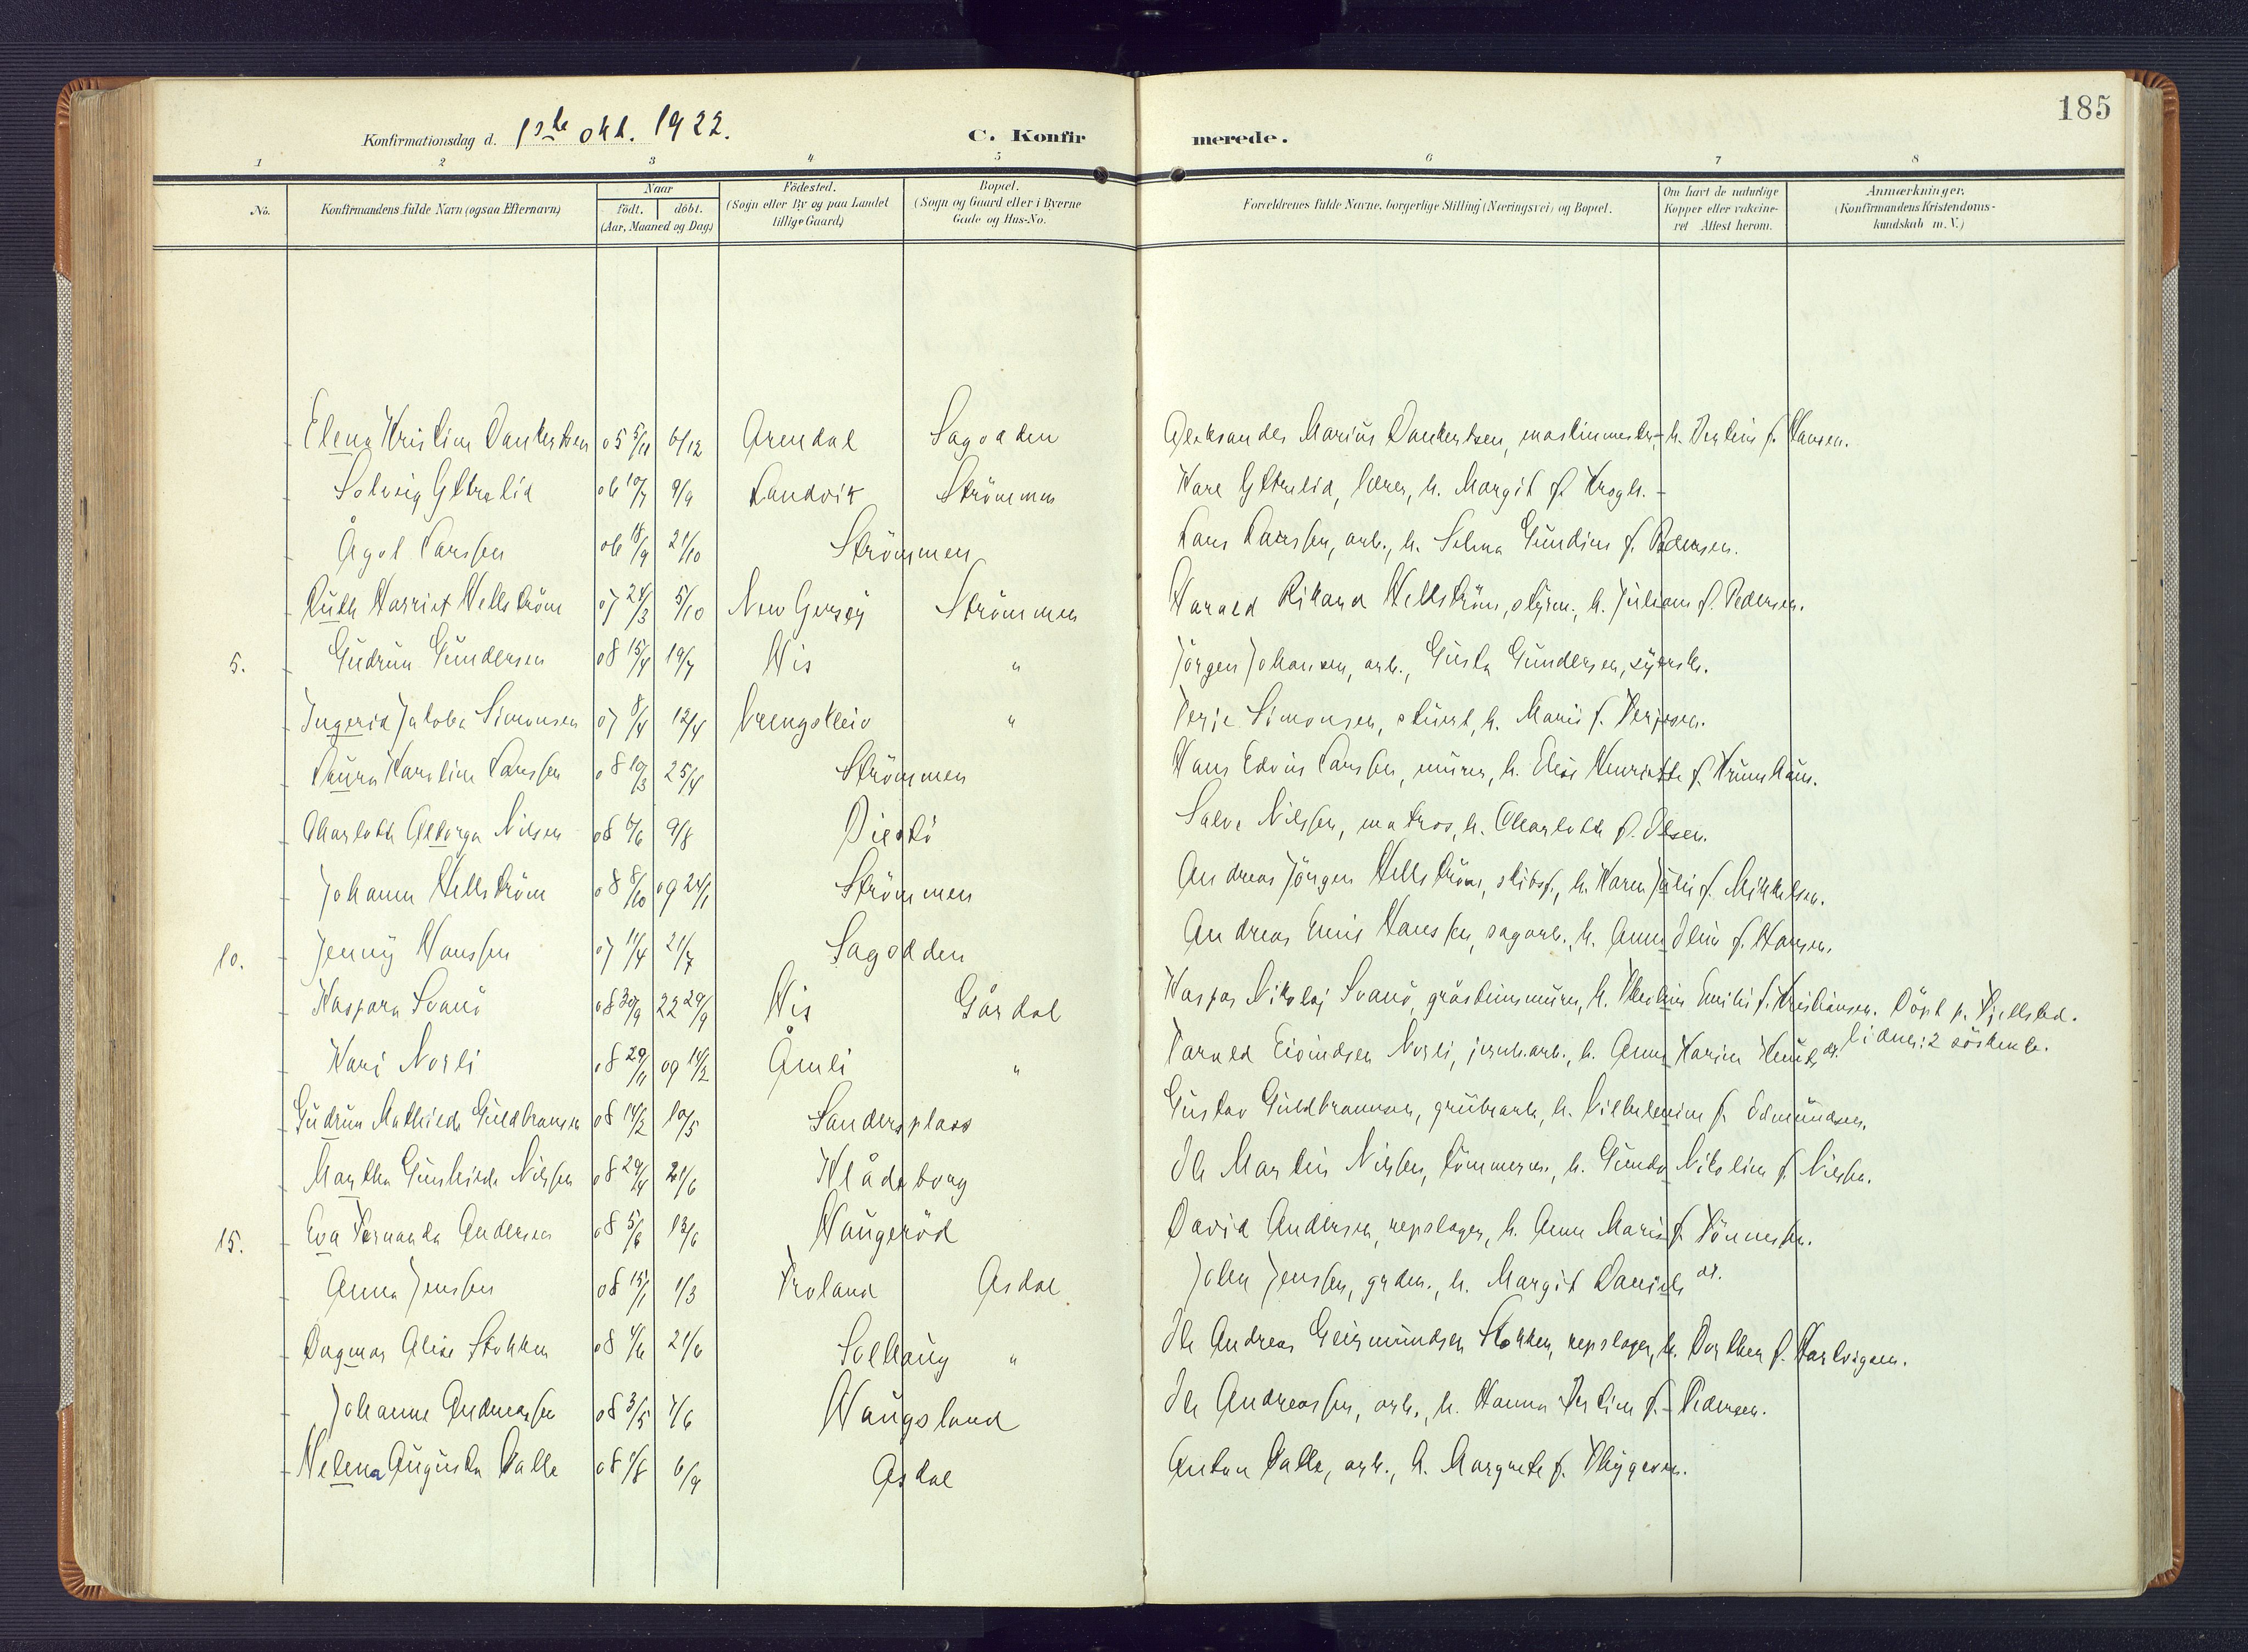 185
Konfirmationsdag d. 1ste okt. 1922. C. Konfirmerede.
1 2 3 4 5 6 7 8
No. Konfirmandens fulde Navn (ogsaa Efternavn) Naar födt. döbt. (Aar, Maaned og Dag) Födested. (Sogn eller By og paa Landet tillige Gaard) Bopæl. (Sogn og Gaard eller i Byerne Gade og Hus-No. Forældrenes fulde Navne, borgerlige Stilling (Næringsvei) og Bopæl. Om havt de naturlige Kopper eller vakcineret Attest herom. Anmærkninger. (Konfirmandens Kristendomskundskab m. V.)
Elena Kristine Dankertsen 05 5/11 6/12 Arendal Sagodden Aleksander Marius Dankertsen, maskinmester, h. f. Hansen.
Solveig Ytrelid 06 10/7 9/9 Landvik Strömmen Kare Ytrelid, lærer, h. Margit f. Krogh.
Ågot Larssen 06 18/9 21/10 Strömmen Lars Larssen, arb., h. Selma Gundine f. Pedersen.
Ruth Harriet Hellström 07 24/3 5/10 New Gersey Strömmen Harald Rikard Hellström, styrm., h. Juliane f. Pedersen.
5. Gudrun Gundersen 08 15/4 19/7 His " Jörgen Johansen, arb., Gusta Gundersen, syersk.
Ingerid Jakoba Simonsen 07 8/4 12/4 Vrengskleiv " Terje Simonsen, stuert, h. Marie f. Terjesen.
Laura Karoline Larssen 08 10/3 25/4 Strömmen Hans Edvin Larssen, murer, h. Elise Henriette f.
Charlotte Valborga Nilsen 08 6/6 9/8 Diestö Salve Nilssen, matros, h. Charlotte f. Olsen.
Johanne Hellström 08 8/10 09 24/1 Strömmen Andreas Jörgen Hellström, skibsf., h. Karen Julie f. Mikkelsen.
10. Jenny Hanssen 07 11/4 21/7 Sagodden Andreas Emil Hanssen, sagarb., h. Anne Oline f. Hansen.
Kaspara Svanö 08 30/9 22 29/9 His Gårdal Kaspar Nikolaj Svanö, gråstensmurer, h. Emilie f. Kristiansen. Döpt p.
Kari Norli 08 29/11 09 14/2 Åmli " Tarald Eivindsen Norli, jernb.arb., h. Anne Karine Knuts dr. 2 söskenb.
Gudrun Mathilde Guldbransen 08 14/2 10/5 Sandersplass Gustav Guldbransen, grubearb., h. Vilhelmine f. Edmundsen.
Martha Gunhilde Nilssen 08 29/4 21/6 Klådeborg Ole Martin Nilssen, tömmerm., h. Gunda Nikoline f. Nilssen.
15. Eva Fernanda Andersen 08 5/6 13/6 Haugeröd David Andersen, repslager, h. Anne Marie f. Tönnesen.
Anna Jenssen 08 15/1 1/3 Froland Asdal John Jenssen, grdm., h. Margit Daniels dr.
Dagmar Alise Stokken 08 4/6 21/6 Solhaug " Ole Andreas Geirmundsen Stokken, repslager, h. Dorthea f. Hartvigsen.
Johanne Andreassen 08 3/5 7/6 Haugsland Ole Andreassen, arb., h. Hanna f. Pedersen.
Helena Augusta Dalle 08 1/8 6/9 Asdal Anton Dalle, arb., h. Margrete f. Thygesen.